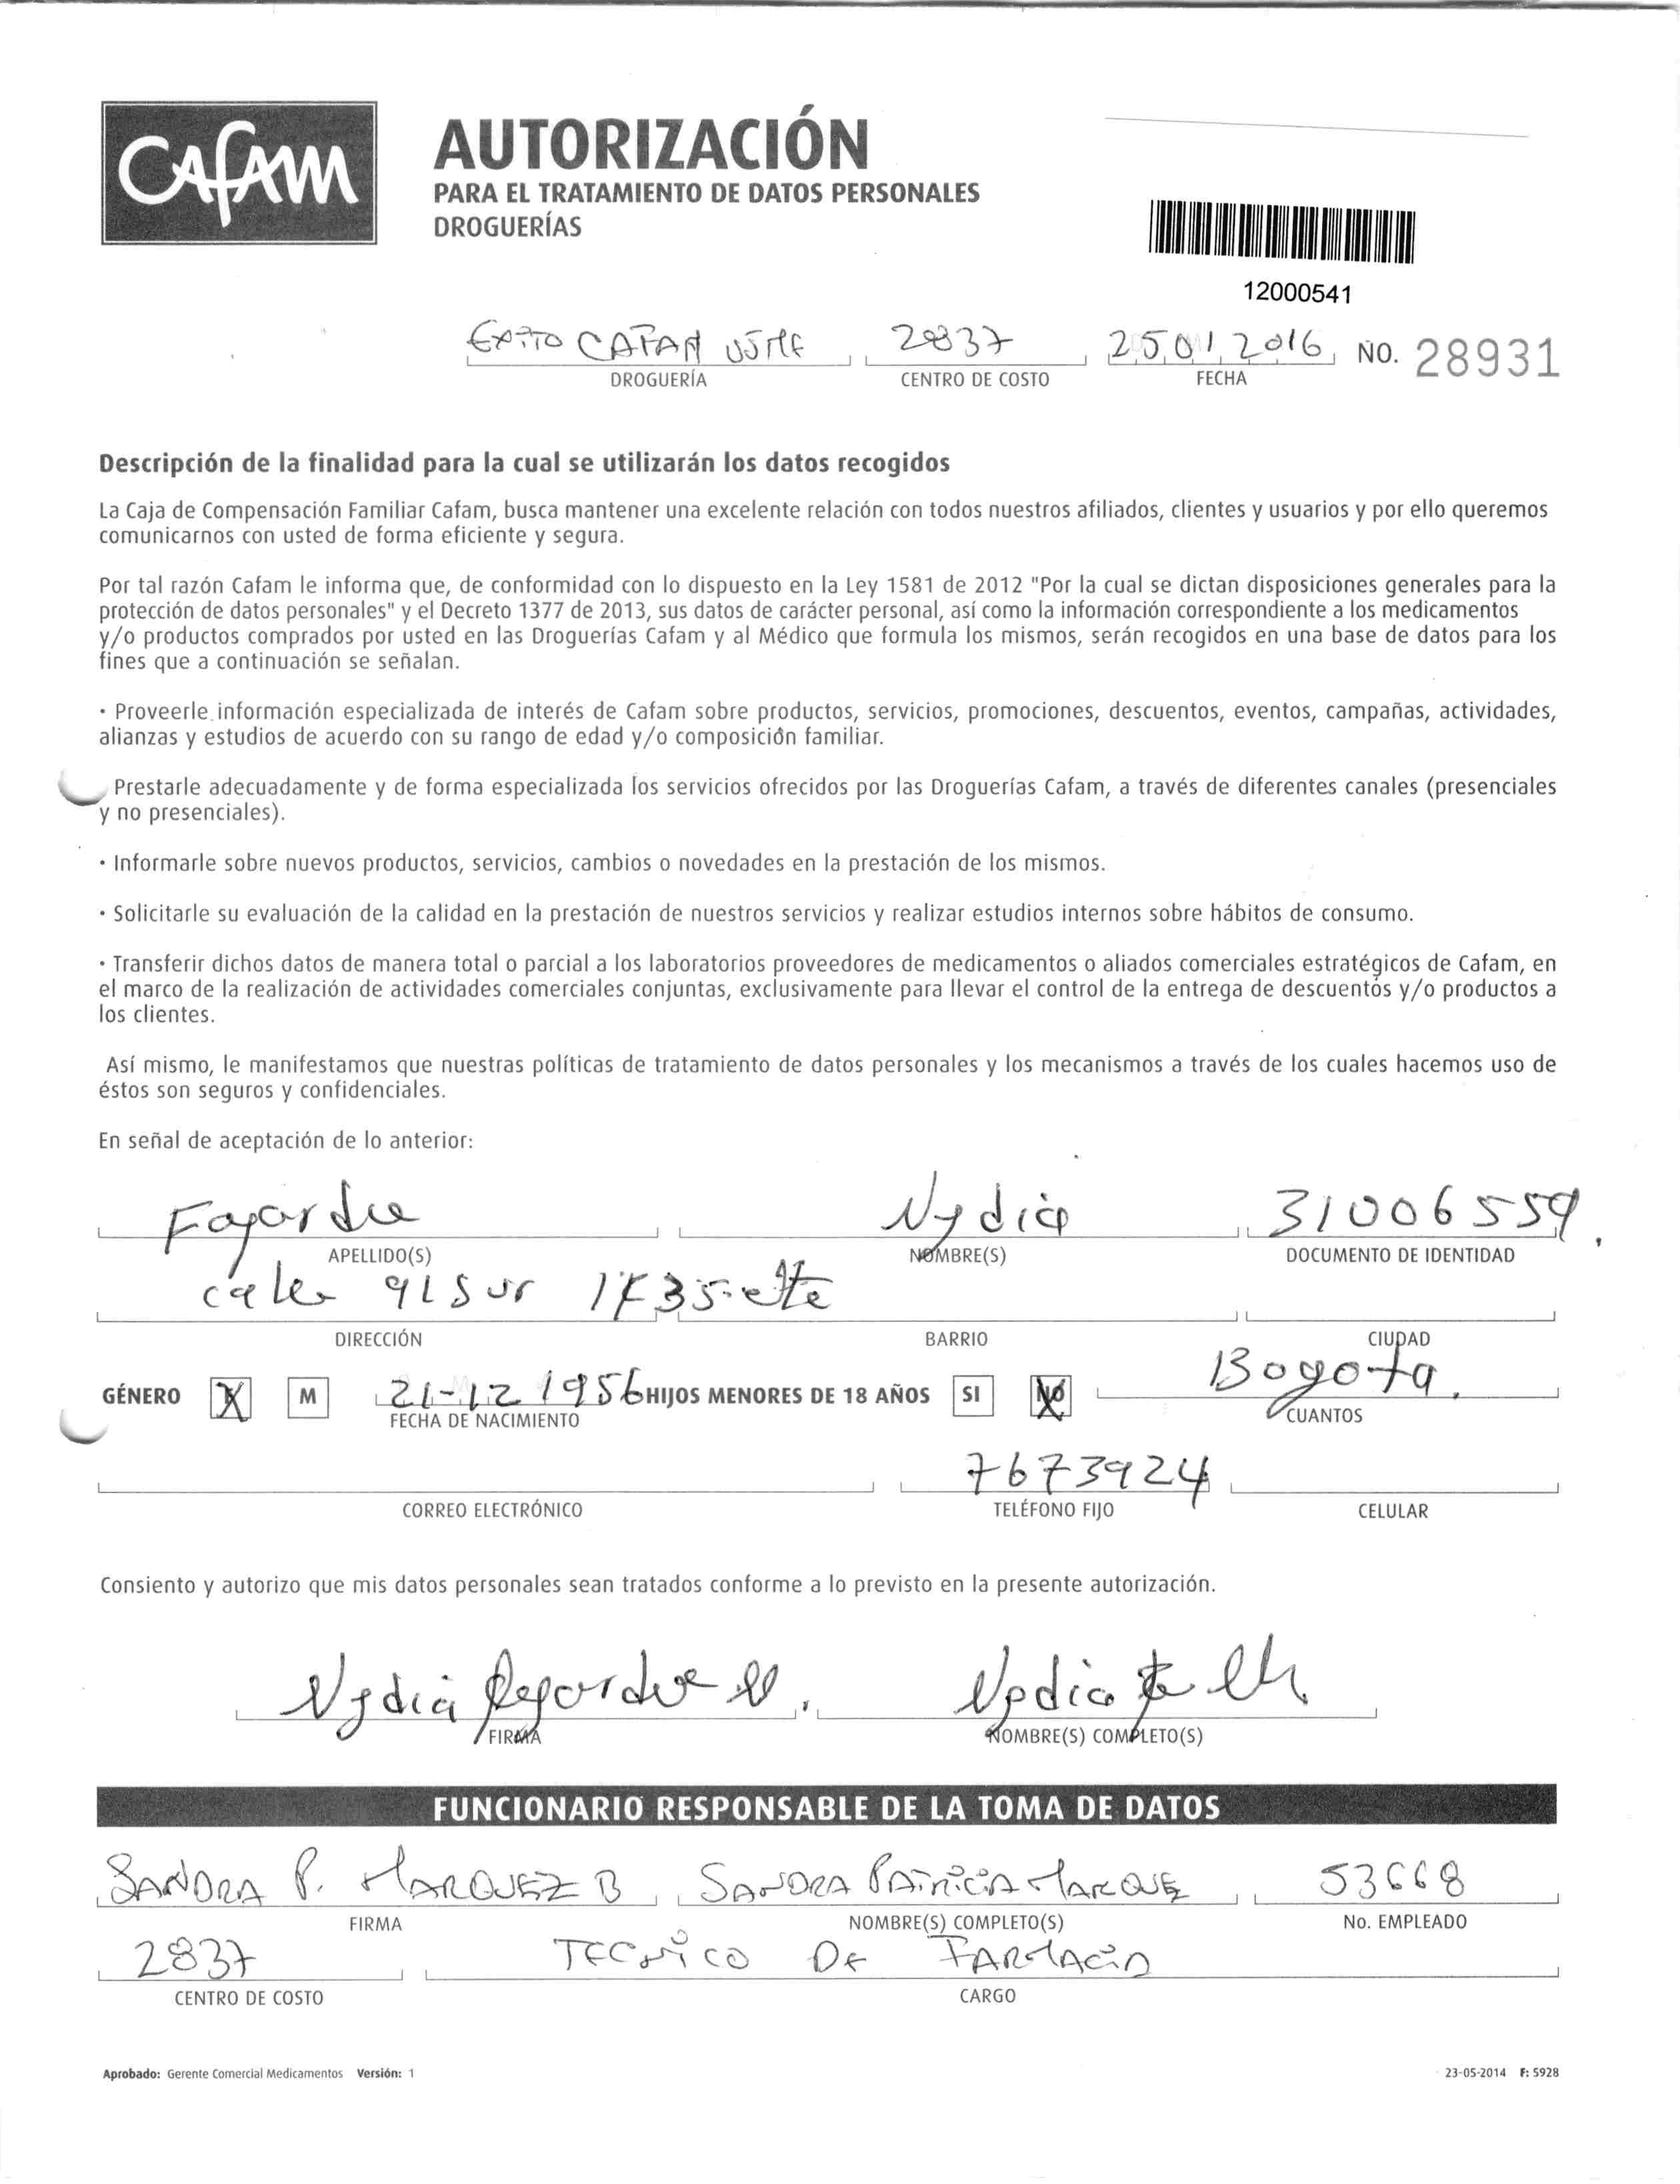 Cafam
AUTORIZACIÓN
PARA EL TRATAMIENTO DE DATOS PERSONALES
DROGUERÍAS
12000541
EXITO CAFAM USME 2837 25 01 2016 NO. 28931
DROGUERÍA CENTRO DE COSTO FECHA
Descripción de la finalidad para la cual se utilizarán los datos recogidos
La Caja de Compensación Familiar Cafam, busca mantener una excelente relación con todos nuestros afiliados, clientes y usuarios y por ello queremos
comunicarnos con usted de forma eficiente y segura.
Por tal razón Cafam le informa que, de conformidad con lo dispuesto en la Ley 1581 de 2012 "Por la cual se dictan disposiciones generales para la
protección de datos personales" y el Decreto 1377 de 2013, sus datos de carácter personal, así como la información correspondiente a los medicamentos
y/o productos comprados por usted en las Droguerías Cafam y al Médico que formula los mismos, serán recogidos en una base de datos para los
fines que a continuación se señalan.
· Proveerle información especializada de interés de Cafam sobre productos, servicios, promociones, descuentos, eventos, campañas, actividades,
alianzas y estudios de acuerdo con su rango de edad y/o composición familiar.
Prestarle adecuadamente y de forma especializada los servicios ofrecidos por las Droguerías Cafam, a través de diferentes canales (presenciales
y no presenciales).
· Informarle sobre nuevos productos, servicios, cambios o novedades en la prestación de los mismos.
· Solicitarle su evaluación de la calidad en la prestación de nuestros servicios y realizar estudios internos sobre hábitos de consumo.
· Transferir dichos datos de manera total o parcial a los laboratorios proveedores de medicamentos o aliados comerciales estratégicos de Cafam, en
el marco de la realización de actividades comerciales conjuntas, exclusivamente para llevar el control de la entrega de descuentos y/o productos a
los clientes.
Así mismo, le manifestamos que nuestras políticas de tratamiento de datos personales y los mecanismos a través de los cuales hacemos uso de
éstos son seguros y confidenciales.
En señal de aceptación de lo anterior:
Fajardo Nydia 31006559.
APELLIDO(S) NOMBRE(S) DOCUMENTO DE IDENTIDAD
91 Sur
DIRECCIÓN BARRIO CIUDAD
Bogota.
GÉNERO X M 21-12 1956 HIJOS MENORES DE 18 AÑOS SI NO
FECHA DE NACIMIENTO CUANTOS
7673924
CORREO ELECTRÓNICO TELÉFONO FIJO CELULAR
Consiento y autorizo que mis datos personales sean tratados conforme a lo previsto en la presente autorización.
Nydia Fajardo Nydia
FIRMA NOMBRE(S) COMPLETO(S)
FUNCIONARIO RESPONSABLE DE LA TOMA DE DATOS
SANDRA P. MARQUEZ B SANDRA PATRICIA MARQUEZ 53668
FIRMA NOMBRE(S) COMPLETO(S) No. EMPLEADO
2837 TECNICO DE FARMACIA
CENTRO DE COSTO CARGO
Aprobado: Gerente Comercial Medicamentos Versión: 1 23-05-2014 F: 5928